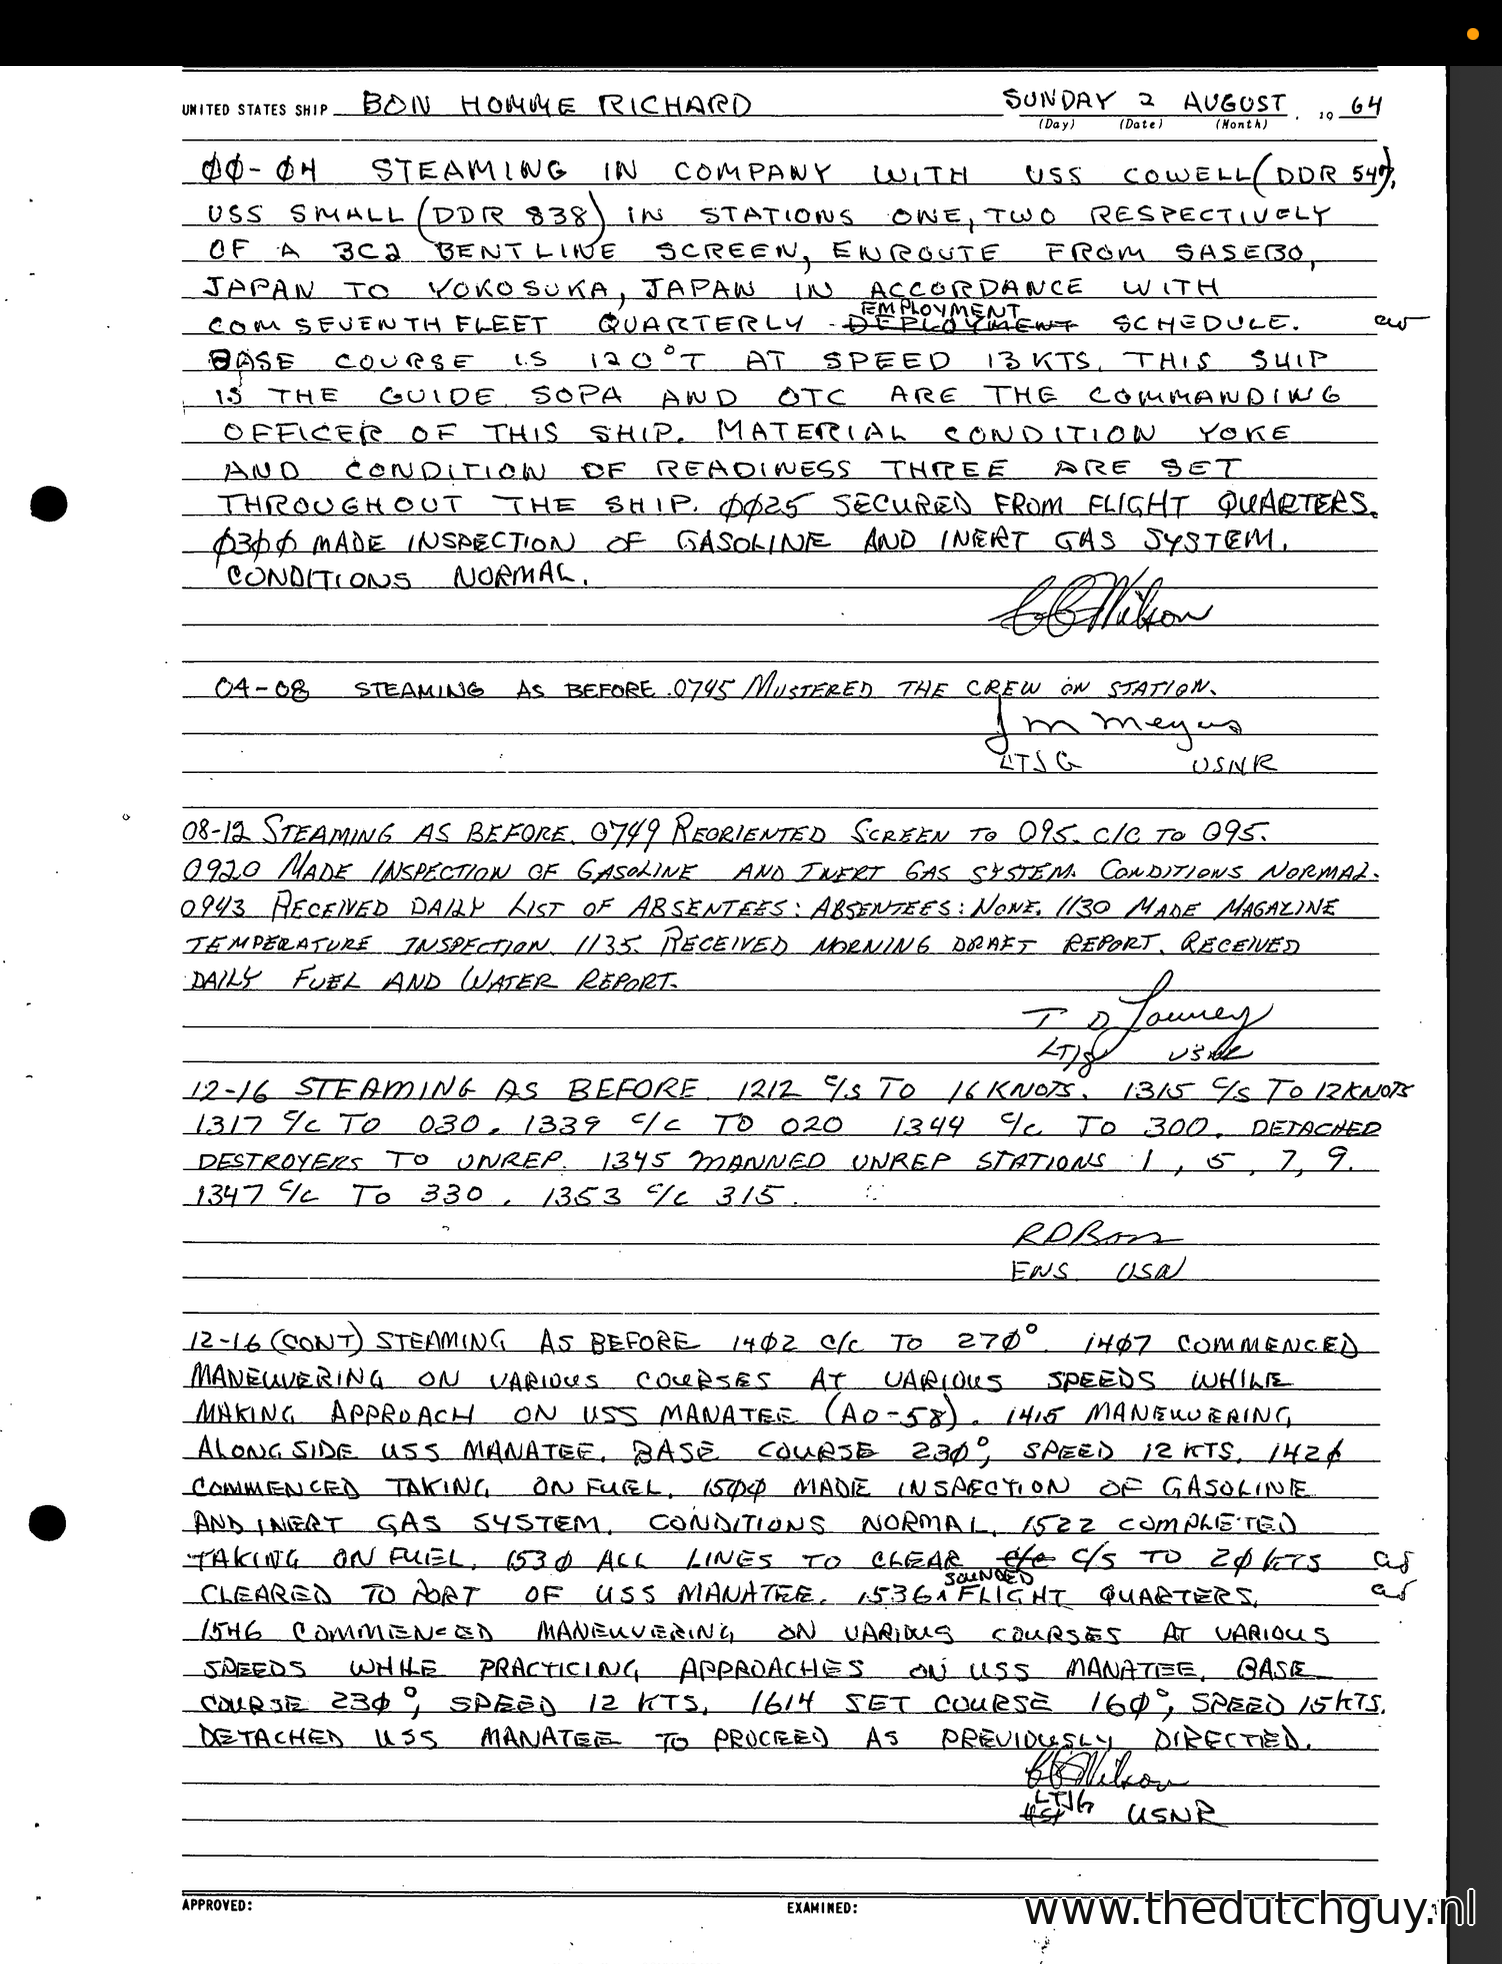 UNITED STATES SHIP BON HOMME RICHARD SUNDAY 2 AUGUST, 19 64
(Day) (Date) (Month)
ØØ-Ø4 STEAMING IN COMPANY WITH USS COWELL (DDR 547),
USS SMALL (DDR 838) IN STATIONS ONE, TWO RESPECTIVELY
OF A 3C2 BENT LINE SCREEN, ENROUTE FROM SASEBO,
JAPAN TO YOKOSUKA, JAPAN IN ACCORDANCE WITH
EMPLOYMENT
COM SEVENTH FLEET QUARTERLY DEPLOYMENT SCHEDULE.
BASE COURSE IS 120°T AT SPEED 13 KTS. THIS SHIP
IS THE GUIDE SOPA AND OTC ARE THE COMMANDING
OFFICER OF THIS SHIP. MATERIAL CONDITION YOKE
AND CONDITION OF READINESS THREE ARE SET
THROUGHOUT THE SHIP. ØØ25 SECURED FROM FLIGHT QUARTERS.
Ø3ØØ MADE INSPECTION OF GASOLINE AND INERT GAS SYSTEM.
CONDITIONS NORMAL.
CC Wilson
04-08 STEAMING AS BEFORE. 0745 MUSTERED THE CREW ON STATION.
J M Meyers
LTJG USNR
08-12 STEAMING AS BEFORE. 0749 REORIENTED SCREEN TO 095. C/C TO 095.
0920 MADE INSPECTION OF GASOLINE AND INERT GAS SYSTEM. CONDITIONS NORMAL.
0943 RECEIVED DAILY LIST OF ABSENTEES: ABSENTEES: NONE. 1130 MADE MAGAZINE
TEMPERATURE INSPECTION. 1135. RECEIVED MORNING DRAFT REPORT. RECEIVED
DAILY FUEL AND WATER REPORT.
T D
LTJG USNR
12-16 STEAMING AS BEFORE. 1212 C/S TO 16 KNOTS. 1315 C/S TO 12 KNOTS
1317 C/C TO 030. 1339 C/C TO 020 1344 C/C TO 300. DETACHED
DESTROYERS TO UNREP. 1345 MANNED UNREP STATIONS 1, 5, 7, 9.
1347 C/C TO 330. 1353 C/C 315.
R D
ENS USN
12-16 (CONT) STEAMING AS BEFORE 14Ø2 C/C TO 27Ø° 14Ø7 COMMENCED
MANEUVERING ON VARIOUS COURSES AT VARIOUS SPEEDS WHILE
MAKING APPROACH ON USS MANATEE (AO-58). 1415 MANEUVERING
ALONGSIDE USS MANATEE. BASE COURSE 23Ø°, SPEED 12 KTS. 142Ø
COMMENCED TAKING ON FUEL. 15ØØ MADE INSPECTION OF GASOLINE
AND INERT GAS SYSTEM. CONDITIONS NORMAL. 1522 COMPLETED
TAKING ON FUEL. 153Ø ALL LINES TO CLEAR C/C C/S TO 2Ø KTS
SOUNDED
CLEARED TO PORT OF USS MANATEE. 1536 FLIGHT QUARTERS.
1546 COMMENCED MANEUVERING ON VARIOUS COURSES AT VARIOUS
SPEEDS WHILE PRACTICING APPROACHES ON USS MANATEE. BASE
COURSE 23Ø°, SPEED 12 KTS. 1614 SET COURSE 16Ø°, SPEED 15 KTS.
DETACHED USS MANATEE TO PROCEED AS PREVIOUSLY DIRECTED.
CC Wilson
LTJG
USNR
APPROVED: EXAMINED:
www.thedutchguy.nl